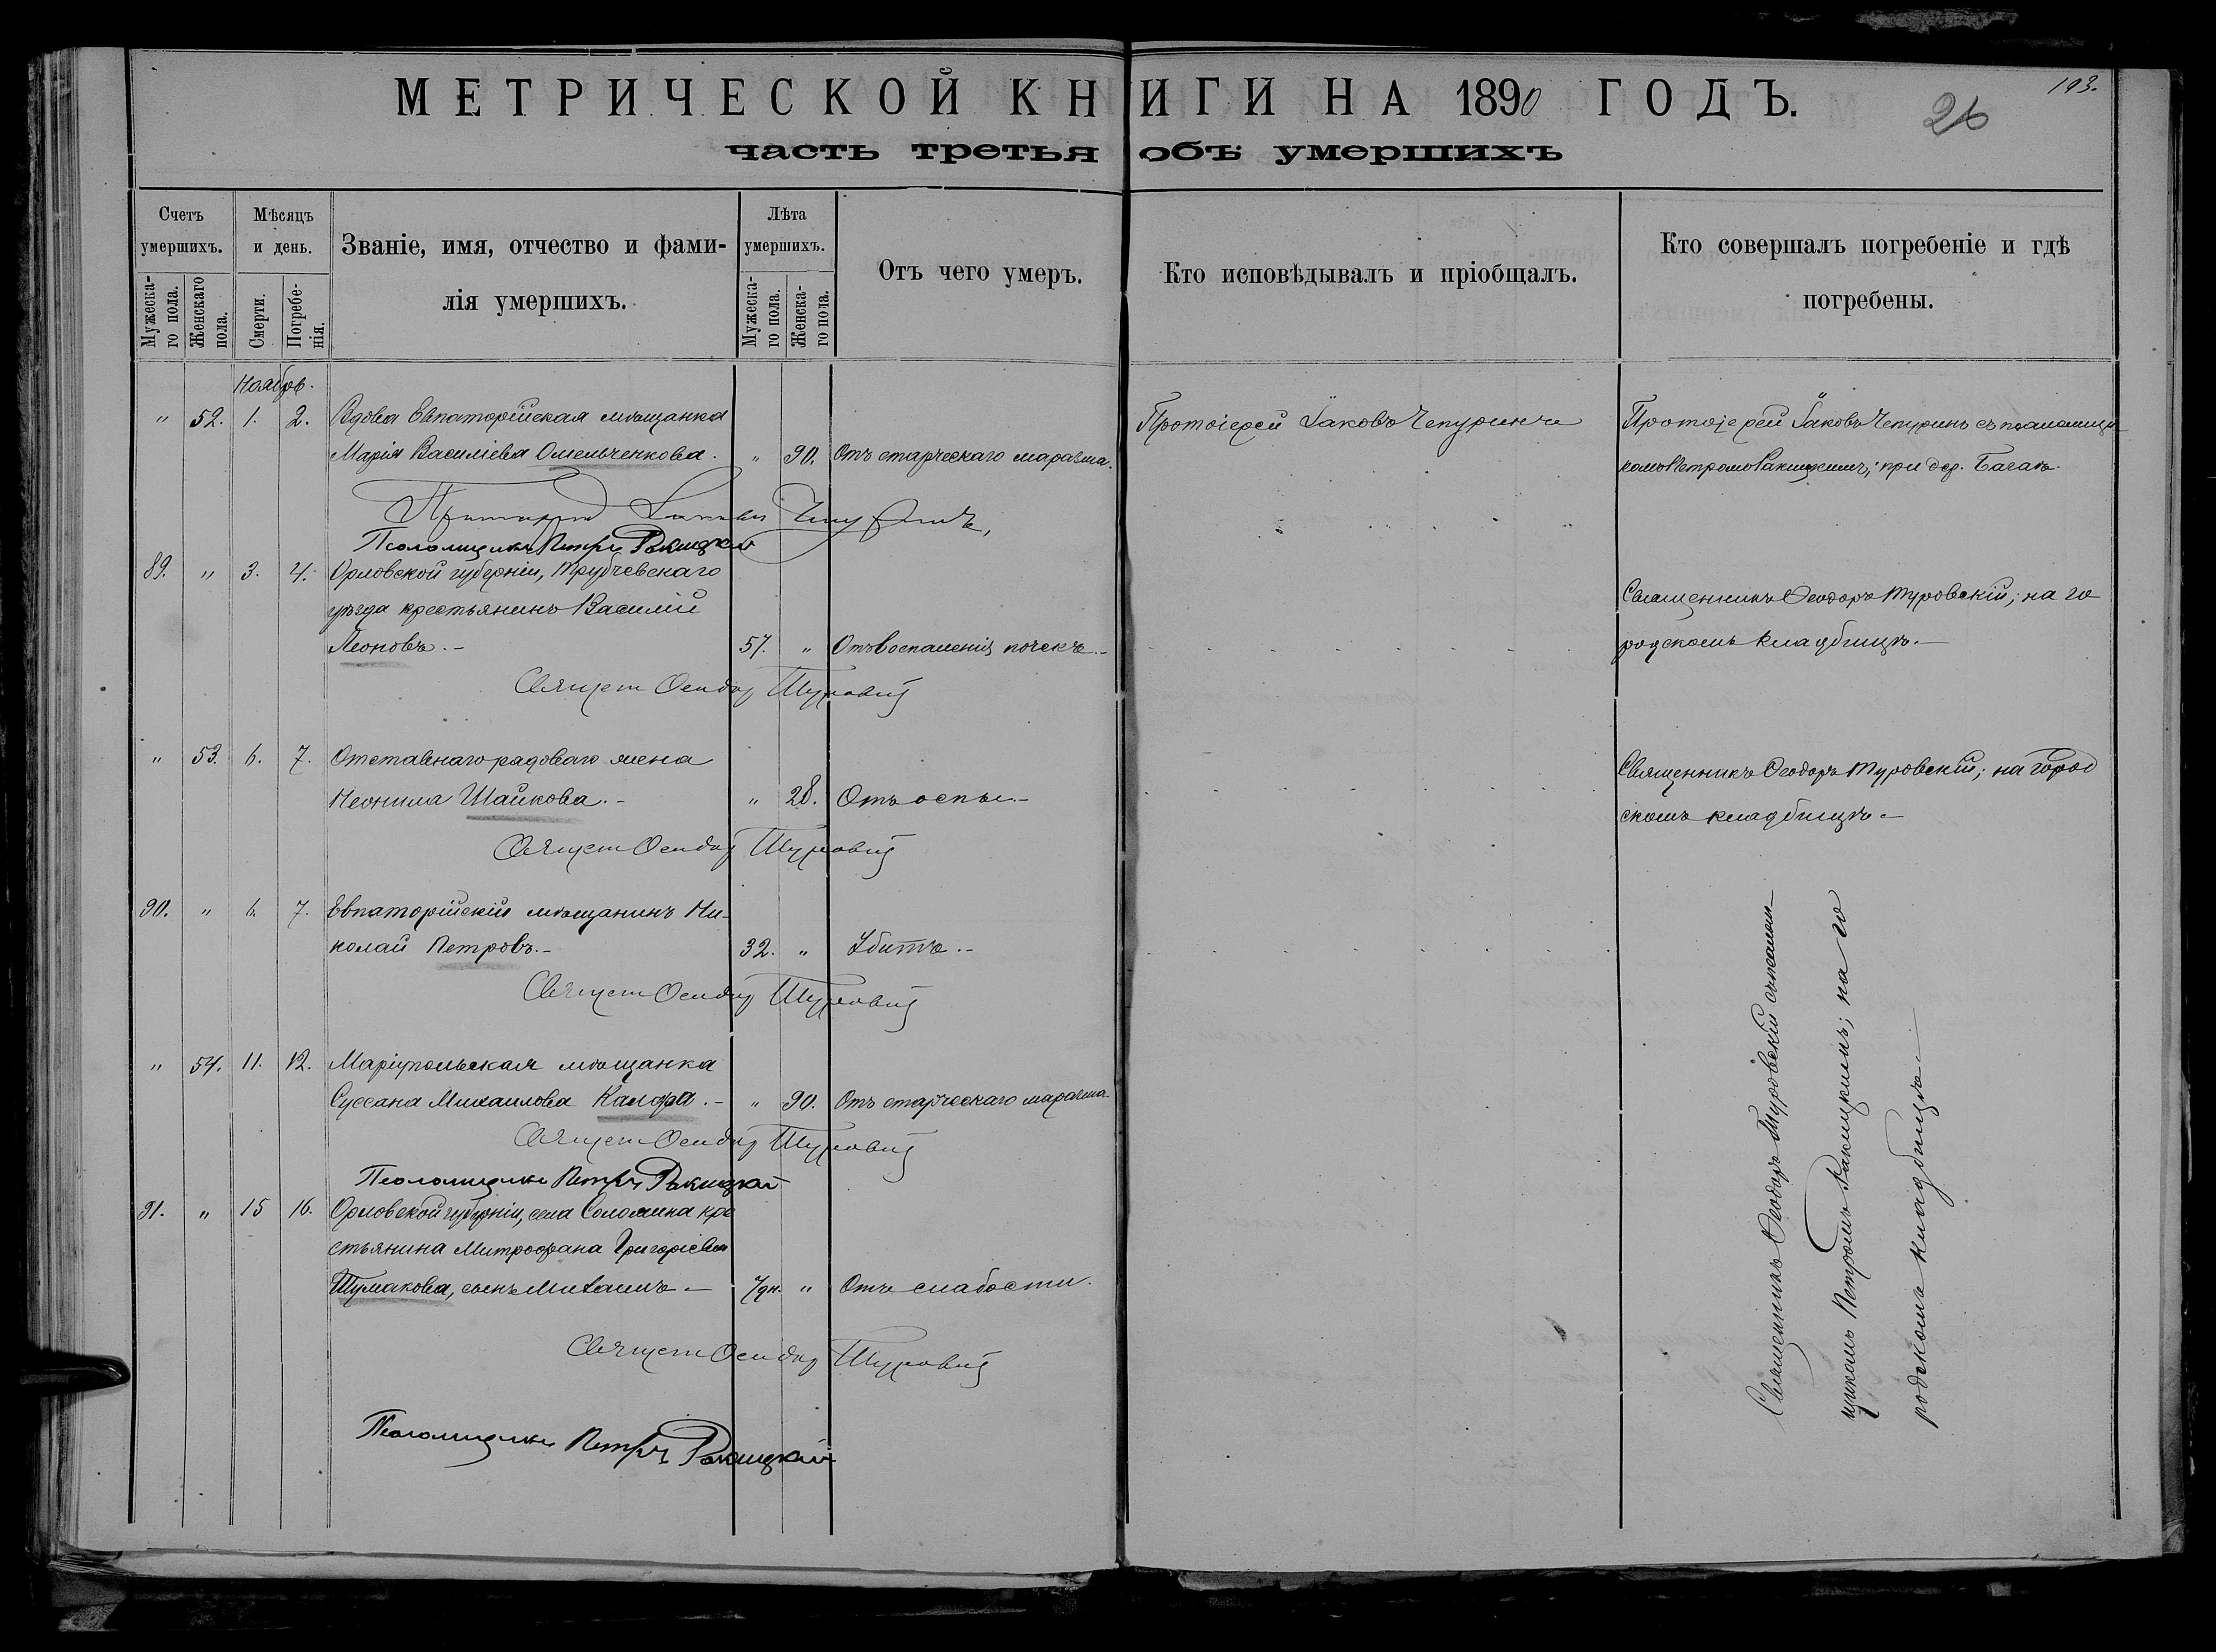 193.
26
МЕТРИЧЕСКОЙ КНИГИ НА 1890 ГОДЪ.
часть третья объ умершихъ
Счетъ умершихъ.
Мужеска-го пола.
Женскаго пола.
Мѣсяцъ и день.
Смерти.
Погребе-нія.
Званіе, имя, отчество и фами-
лія умершихъ.
Лѣта умершихъ.
Мужеска-го пола.
Женска-го пола.
Отъ чего умеръ.
Кто исповѣдывалъ и пріобщалъ.
Кто совершалъ погребеніе и гдѣ
погребены.
Ноябрь.
" 52. 1. 2. Вдова Евпаторійская мѣщанка
Марія Василіева Омельченкова. " 90. Отъ старческаго маразма.
Протоіерей Іаковъ Чепуринъ
Протоіерей Іаковъ Чепуринъ съ псаломщи
комъ Петромъ Ракицкимъ; при дер.
Протоіерей Іаковъ Чепуринъ,
Псаломщикъ Петръ Ракицкій
89. " 3. 4. Орловской губерніи, Трубчевскаго
уѣзда крестьянинъ Василій
Леоновъ.- 57. " Отъ воспаленія почекъ.-
Священникъ Ѳеодоръ Туровскій; на го
родскомъ кладбищѣ.-
Священ Ѳеодор Туровскій
" 53. 6. 7. Отставнаго рядоваго жена
Неонила Шайкова.- " 28. Отъ оспы.-
Священникъ Ѳеодоръ Туровскій; на город
скомъ кладбищѣ.-
Священ Ѳеодор Туровскій
90. " 6. 7. Евпаторійскій мѣщанинъ Ни-
колай Петровъ.- 32. " Убитъ.-
Священ Ѳеодор Туровскій
" 54. 11. 12. Маріупольская мѣщанка
Суссана Михаилова Калфа.- " 90. Отъ старческаго маразма.
Священ Ѳеодор Туровскій
Псаломщикъ Петръ Ракицкій
91. " 15 16. Орловской губерніи, села Соломина кре
стьянина Митрофана Григоріева
Шумакова, сынъ Михаилъ.- 7 дн. " Отъ слабости.
Священ Ѳеодор Туровскій
Псаломщикъ Петръ Ракицкій
Священникъ Ѳеодоръ Туровскій съ псалом-
щикомъ Петромъ Ракицкимъ; на го
родскомъ кладбищѣ.-